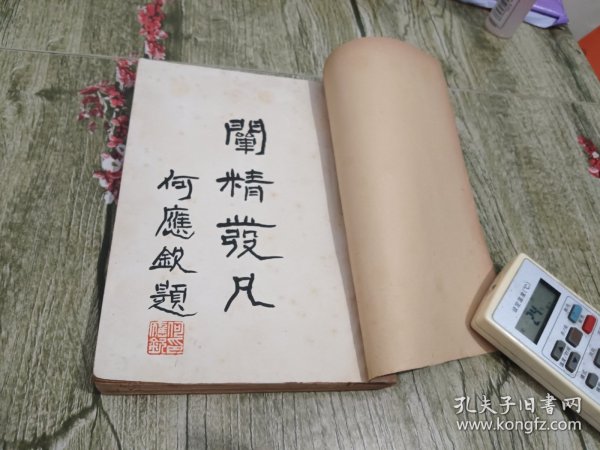 闡精發凡
何應欽題
何應欽印
孔夫子旧书网
www.kongfz.com